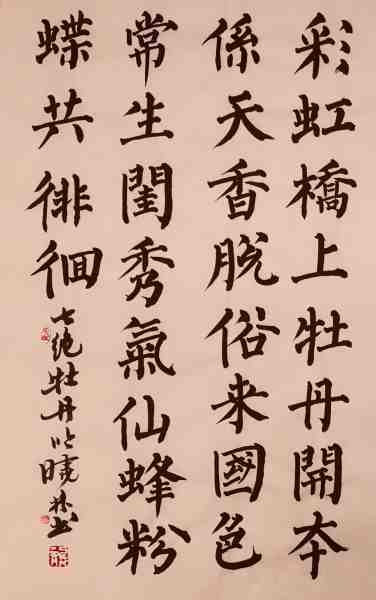 彩虹橋上牡丹開本
係天香脱俗来國色
常生閨秀氣仙蜂粉
蝶共徘徊
七绝牡丹吟曉林书